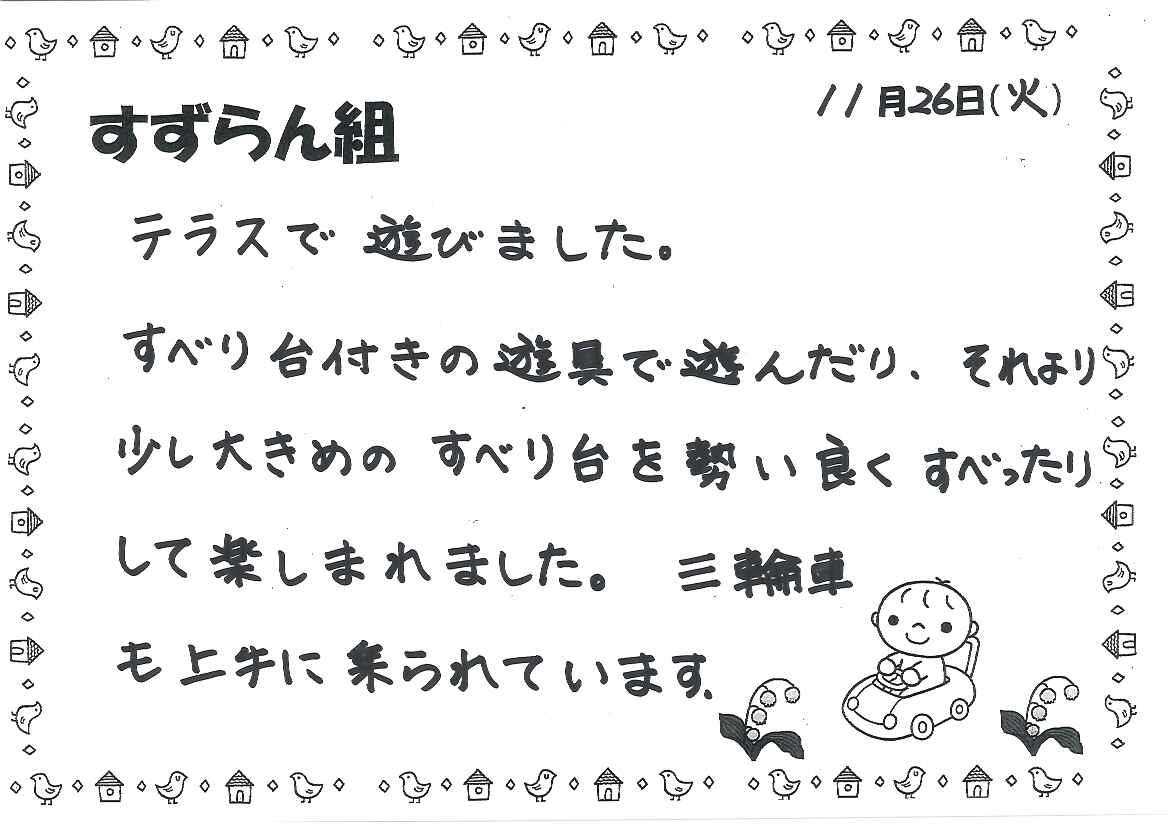 11月26日(火)
すずらん組
テラスで遊びました。
すべり台付きの遊具で遊んだり、それより
少し大きめのすべり台を勢い良くすべったり
して楽しまれました。 三輪車
も上手に乗られています。